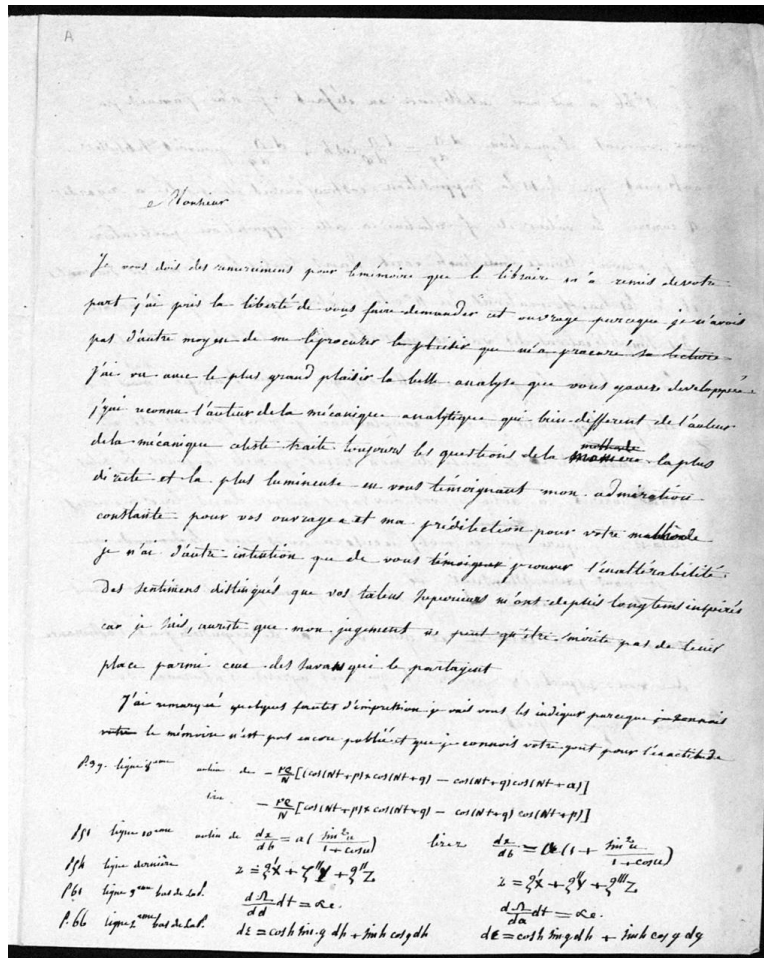 A
Monsieur
Je vous dois des remercimens pour le mémoire que le libraire m'a remis de votre
part j'ai pris la liberté de vous faire demander cet ouvrage parceque je n'avois
pas d'autre moyen de me le procurer le plaisir que m'a procuré sa lecture
j'ai vu avec le plus grand plaisir la belle analyse que vous y avez developpée
j'y ai reconnu l'auteur de la mécanique analytique qui bien different de l'auteur
de la mécanique celeste traite toujours les questions de la methode maniere la plus
directe et la plus lumineuse en vous témoignant mon admiration
constante pour vos ouvrages et ma prédilection pour votre methode
je n'ai d'autre intention que de vous témoigner prouver l'inaltérabilité
des sentimens distingués que vos talens superieurs m'ont depuis longtems inspirés
car je sais, au reste que mon jugement ne peut qu'etre mérite pas de tenir
place parmi ceux des savans qui le partagent
J'ai remarqué quelques fautes d'impression je vais vous les indiquer parceque je connais
votre le mémoire n'est pas encore publié et que je connois votre gout pour l'exactitude
p. 39. ligne 8eme au lieu de − re/N [cos(Nt+p) × cos(Nt+q) − cos(Nt+q) cos(Nt+a)]
lire − re/N [cos(Nt+p) × cos(Nt+q) − cos(Nt+q) cos(Nt+p)]
p51 ligne 10eme au lieu de dx/db = a( sin²u/1+cosu) lirez dx/db = a(1 + sin²u/1+cosu)
p54 ligne derniére z = ζ'X + ζ''Y + ζ''Z z = ζ'X + ζ''Y + ζ'''Z
p61 ligne 9eme bas de la p. dΩ/dd dt = αe. dΩ/da dt = αe.
p. 66 ligne 2eme bas de la P. dε = cosh sin.g dh + sinh cosg dh dε = cosh sin g dh + sinh cos g dg